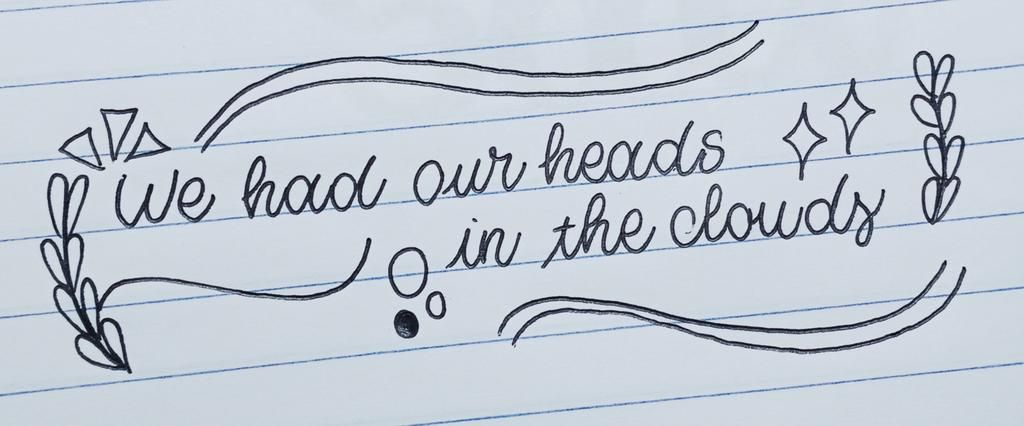 We had our heads
in the clouds